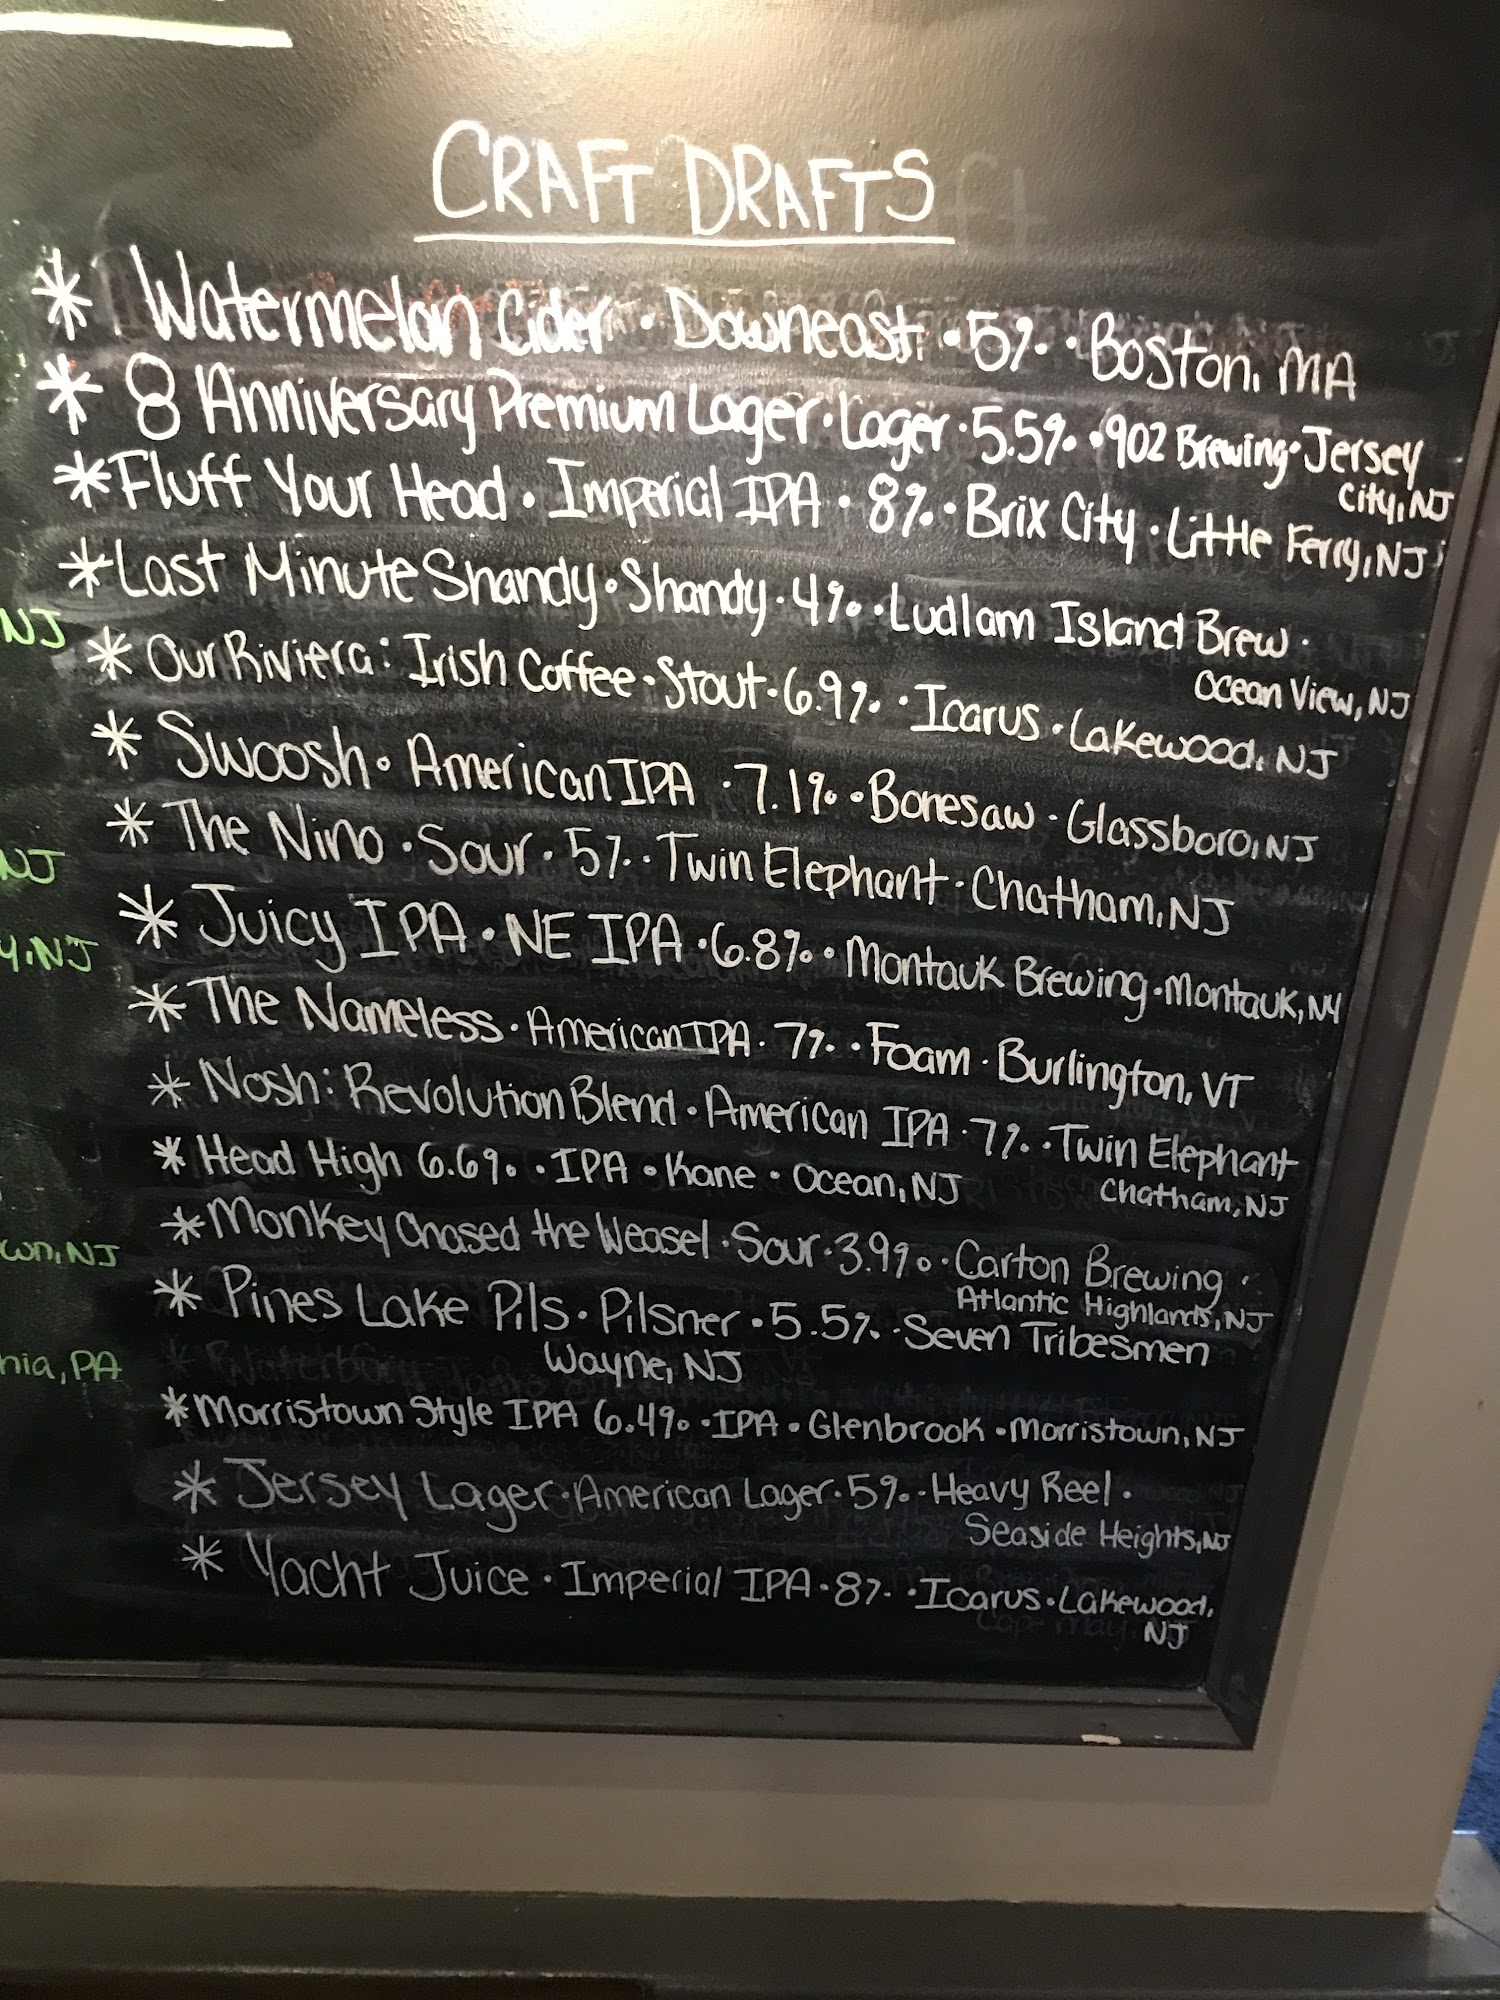 CRAFT DRAFTS
* Watermelon Cider · Downeast · 5% · Boston, MA
* 8 Anniversary Premium Lager · Lager · 5.5% · 902 Brewing · Jersey
City, NJ
* Fluff Your Head · Imperial IPA · 8% · Brix City · Little Ferry, NJ
* Last Minute Shandy · Shandy · 4% · Ludlam Island Brew ·
Ocean View, NJ
* Our Riviera: Irish Coffee · Stout · 6.9% · Icarus · Lakewood, NJ
* Swoosh · American IPA · 7.1% · Bonesaw · Glassboro, NJ
* The Nino · Sour · 5% · Twin Elephant · Chatham, NJ
* Juicy IPA · NE IPA · 6.8% · Montauk Brewing · Montauk, NY
* The Nameless · American IPA · 7% · Foam · Burlington, VT
* Nosh: Revolution Blend · American IPA · 7% · Twin Elephant
Chatham, NJ
* Head High 6.6% · IPA · Kane · Ocean, NJ
* Monkey Chased the Weasel · Sour · 3.9% · Carton Brewing ·
Atlantic Highlands, NJ
* Pines Lake Pils · Pilsner · 5.5% · Seven Tribesmen
Wayne, NJ
* Morristown Style IPA 6.4% · IPA · Glenbrook · Morristown, NJ
* Jersey Lager · American Lager · 5% · Heavy Reel ·
Seaside Heights, NJ
* Yacht Juice · Imperial IPA · 8% · Icarus · Lakewood,
NJ
NJ
NJ
y, NJ
wn, NJ
hia, PA